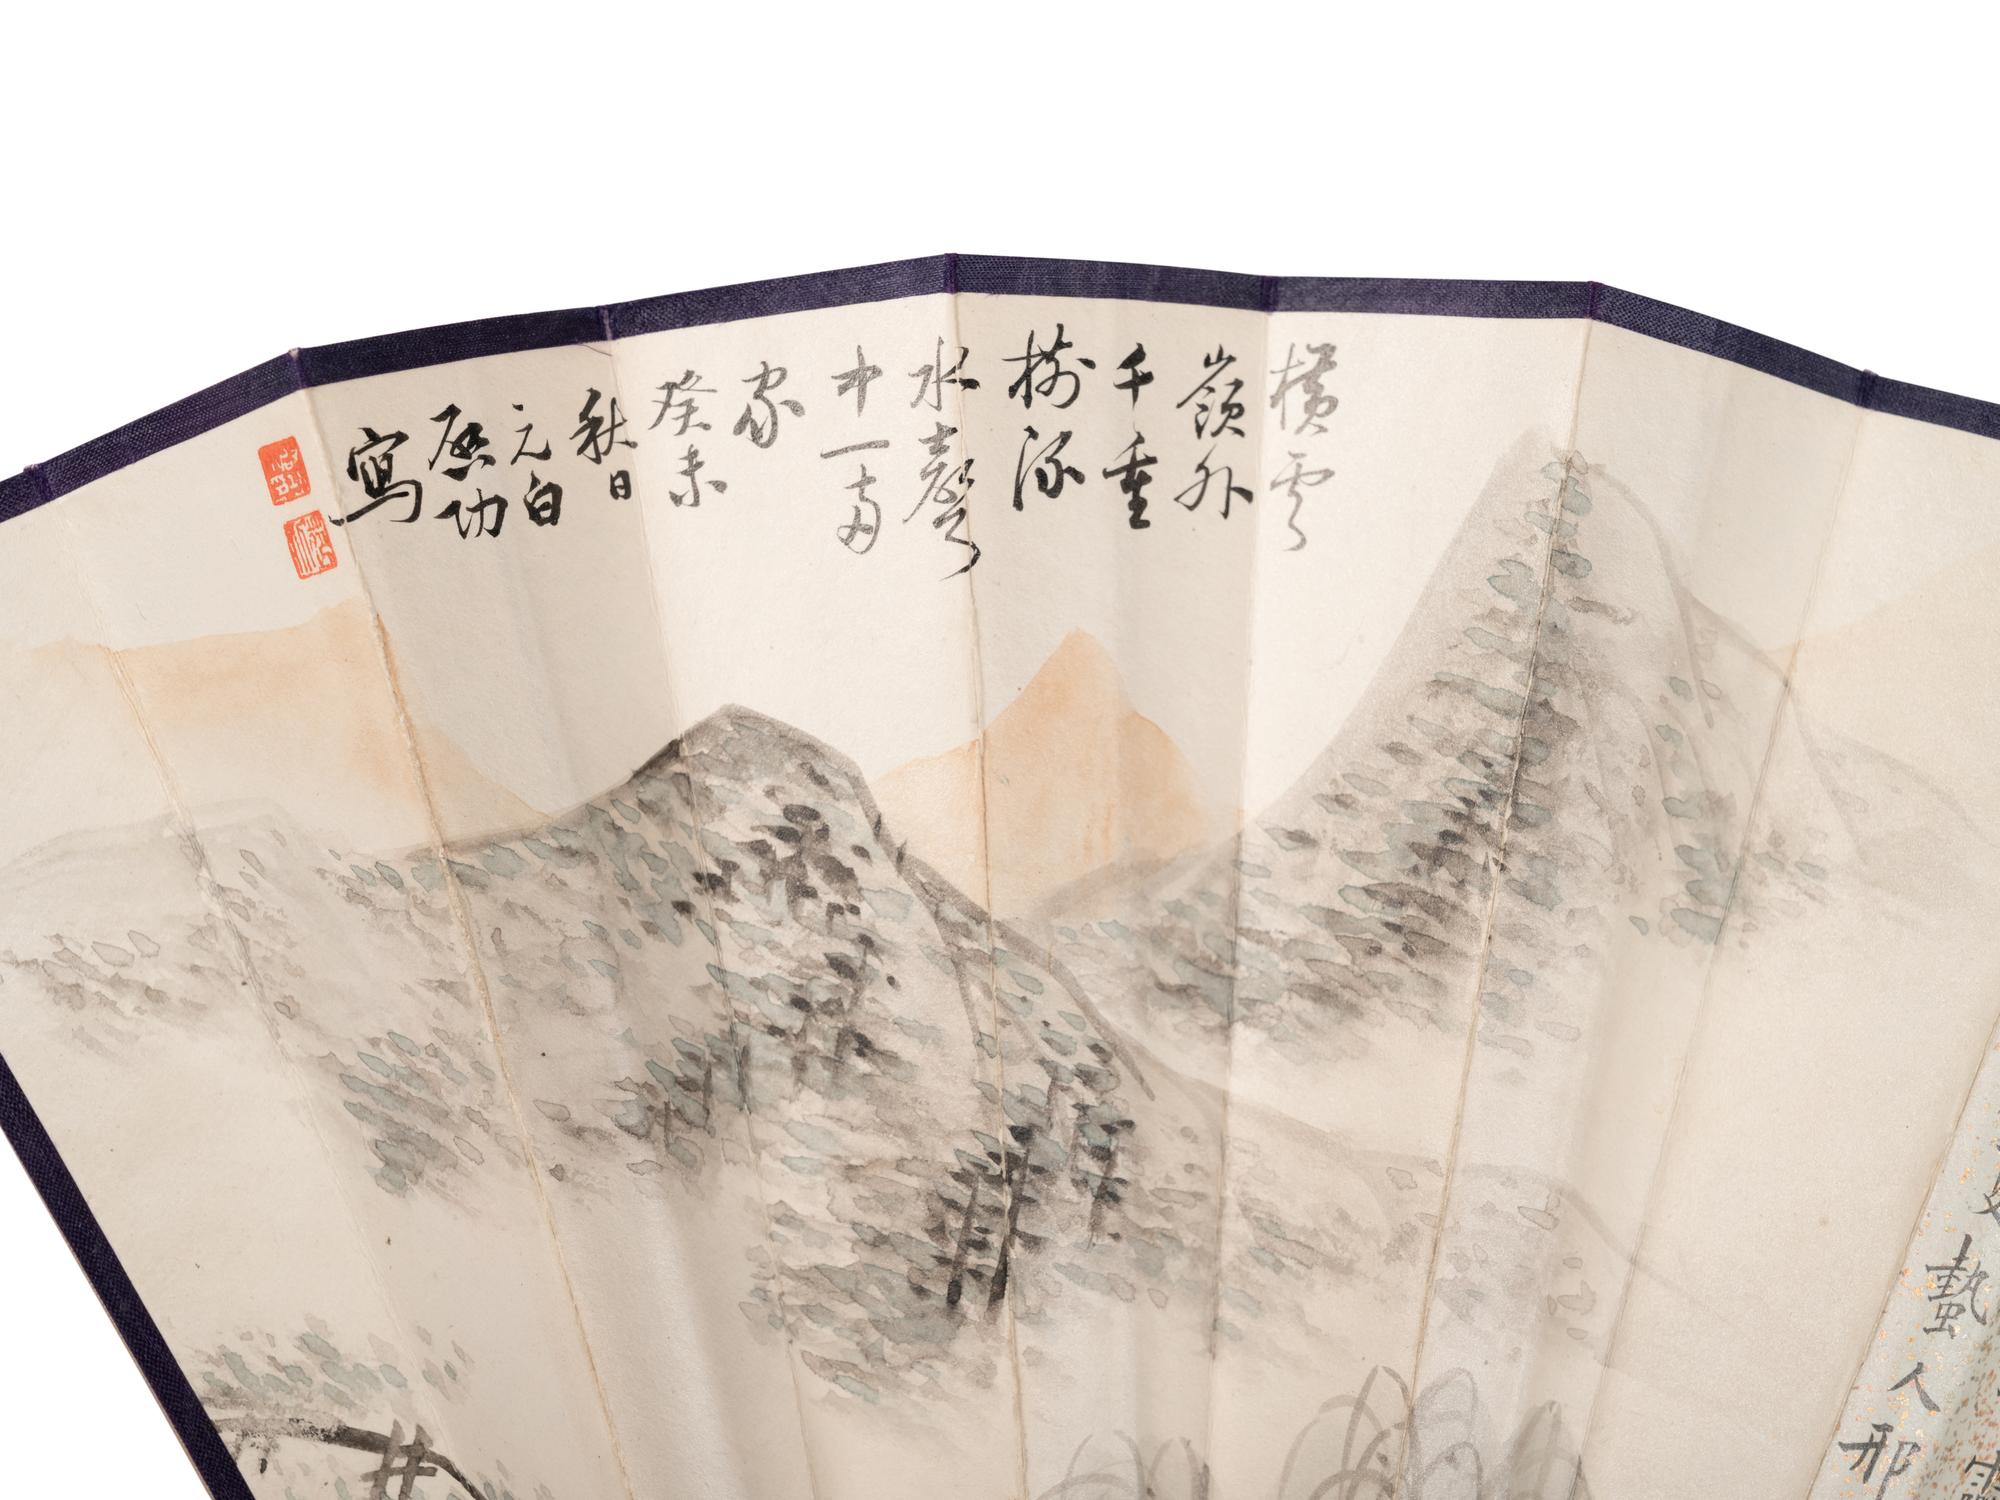 橫雲
嶺外
千重
樹流
水聲
中一
家
癸未
秋日
元白
啟功
寫
蟄
人
邪